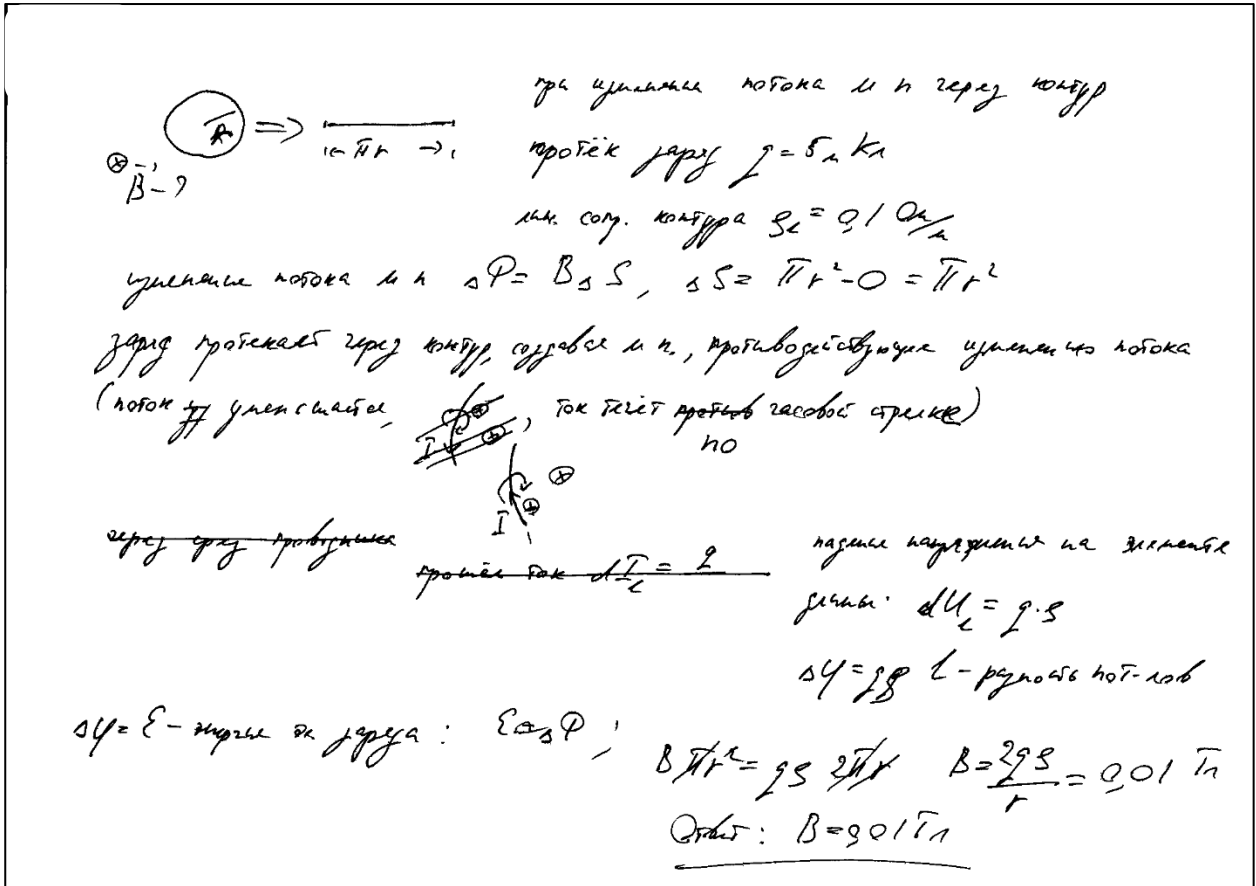 при изменение потока м п через контур
R => |<- πr ->|
протёк заряд q = 5 м Кл
⊗ B - ?
лин. сопр. контура ρ_L = 0,1 Ом/м
изменение потока м п ΔΦ = BΔS, ΔS = πr² - 0 = πr²
заряд протекает через контур, создавая м п., противодействующее изменению потока
(поток уменьшается, I ⊗ ⊗, ток течёт против часовой стрелке)
по
I ⊗ ⊗
через срез проводника
прошёл ток dI_L = q
падение напряжения на элементе
длины: dU_L = q·ρ
Δφ = qρ l - разность пот-лов
Δφ = Ɛ - энергия за заряда : Ɛ = ΔΦ ;
Bπr² = qρ 2πr B = 2qρ/r = 0,01 Тл
Ответ: B = 0,01 Тл